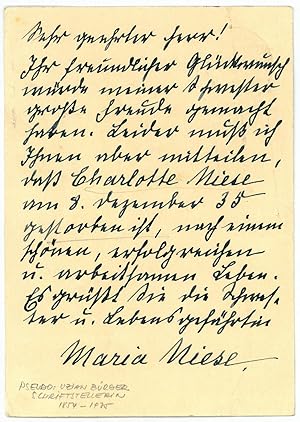 Sehr geehrter Herr!
Ihr freundlicher Glückwunsch
würde meiner Schwester
große Freude gemacht
haben. Leider muß ich
Ihnen aber mitteilen,
daß Charlotte Niese
am 8. Dezember 35
gestorben ist, nach einem
schönen, erfolgreichen
u. arbeitsamen Leben.
Es grüßt Sie die Schwes-
ter u. Lebensgefährtin
Maria Niese.
PSEUDO: LUZIAN BÜRGER
SCHRIFTSTELLERIN
1854 - 1935